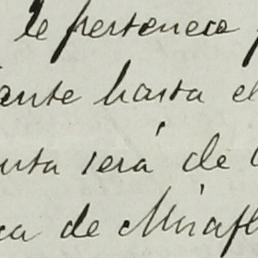 le pertenece
ante hasta el
nta será de
ca de Mirafl